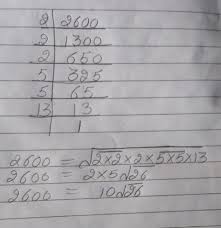 2 | 2600
2 | 1300
2 | 650
5 | 325
5 | 65
13 | 13
| 1
2600 = √2×2×2×5×5×13
2600 = 2×5√26
2600 = 10√26